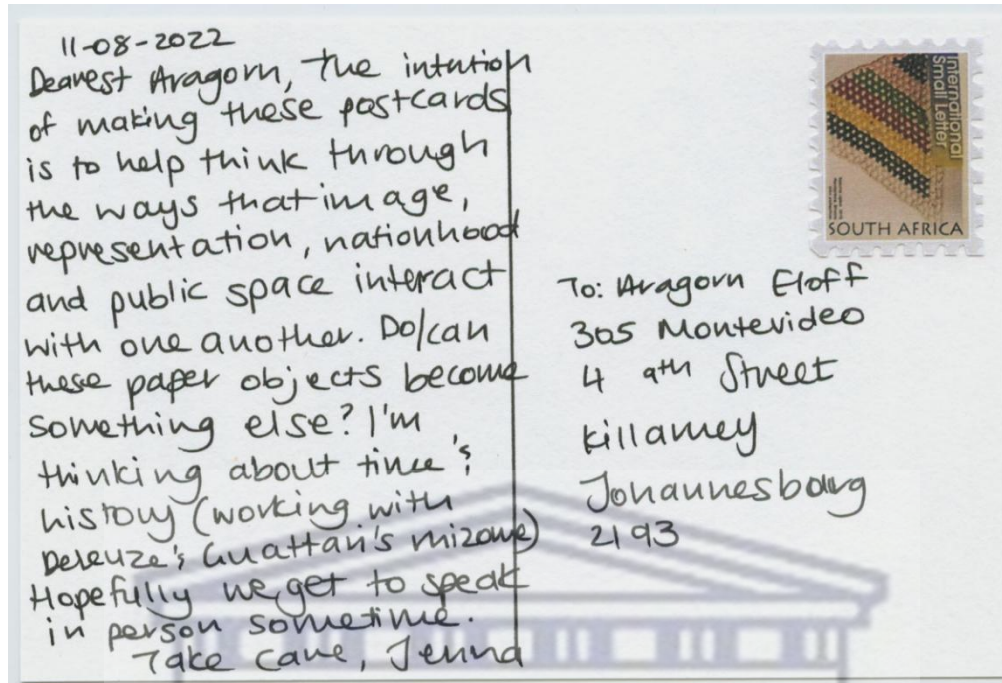 11-08-2022
Dearest Aragorn, The intention
of making these postcards
is to help think through
the ways that image,
representation, nationhood
and public space interact
with one another. Do/can
these paper objects become
something else? I'm
thinking about time &
history (working with
Deleuze & Guattari's rhizome)
Hopefully we get to speak
in person sometime.
Take care, Jenna
International
Small Letter
SOUTH AFRICA
To: Aragorn Eloff
305 Montevideo
4 9th Street
Killarney
Johannesburg
2193